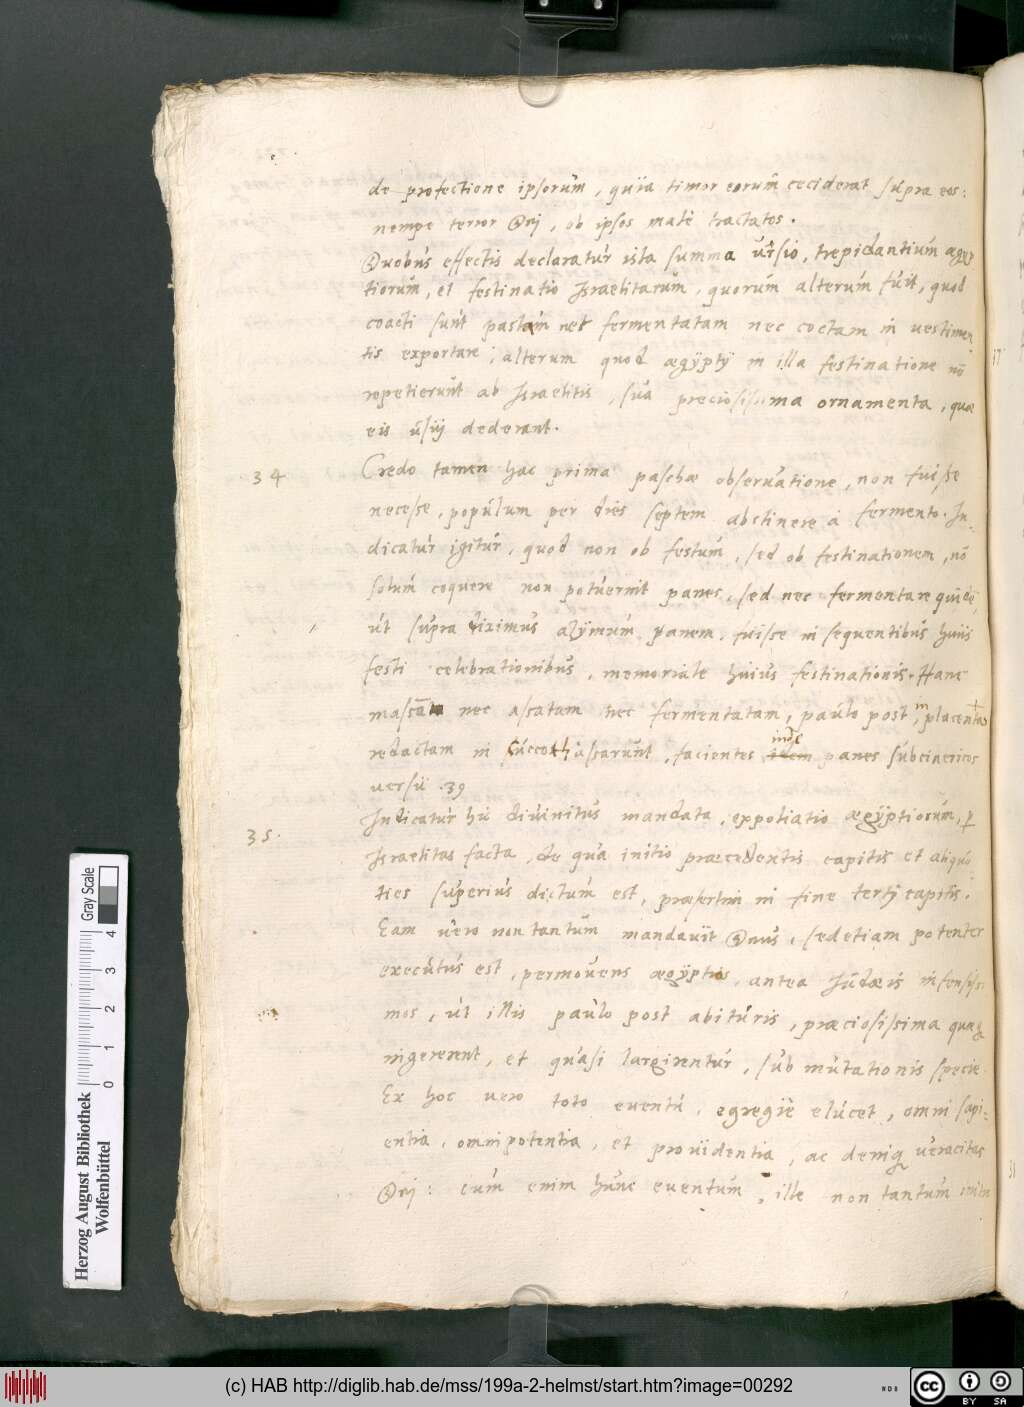 de profectione ipsorum, quia timor eorum ceciderat supra eos:
nempe terror Dei, ob ipsos male tractatos.
Duobus effectis declaratur ista summa ursio, trepidantium ægyp
tiorum, et festinatio Israelitarum, quorum alterum fuit, quod
coacti sunt pastam nec fermentatam nec coctam in vestimen
tis exportare; alterum quod ægyptij in illa festinatione nō
repetierunt ab Israelitis, sua preciosissima ornamenta, quæ
eis usui dederant.
34 Credo tamen hac prima paschæ observatione, non fuisse
necesse, populum per dies septem abstinere à fermento. In-
dicatur igitur, quod non ob festum, sed ob festinationem, nō
solum coquere non potuerint panes, sed nec fermentare quidē,
ut supra diximus azymum panem, fuisse in sequentibus huius
festi celebrationibus, memoriale huius festinationis. Hanc
massam nec ascatam nec fermentatam, paulo post, in placentas
redactam in Succoth assarunt, facientes inde panes subcinericios
versu .39
35. Indicatur hic divinitus mandata, expoliatio ægyptiorum, p
Israelitas facta, de qua initio præcedentis capitis et aliquo
ties superius dictum est, præsertim in fine tertij capitis.
Eam vero non tantum mandavit Dnus, sed etiam potenter
executus est, permovens ægyptios, antea Judæis infensissi
mos, ut illis paulo post abituris, præciosissima quæq
ingererent, et quasi largirentur, sub mutationis specie.
Ex hoc vero toto eventu, egregie elucet, omni sapi-
entia, omnipotentia, et providentia, ac deniq veracitas
Dei: cum enim hunc eventum, ille non tantum
Herzog August Bibliothek
Wolfenbüttel
0 1 2 3 4
Gray Scale
(c) HAB http://diglib.hab.de/mss/199a-2-helmst/start.htm?image=00292
cc BY SA